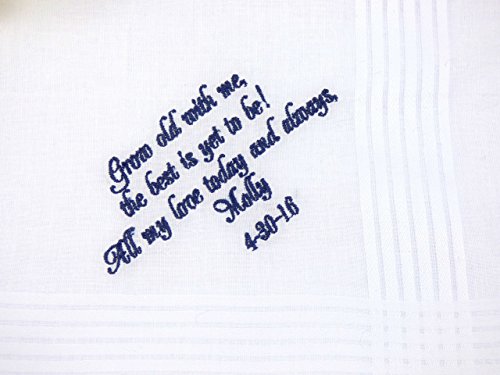 Grow old with me,
the best is yet to be!
All my love today and always,
Molly
4-30-16